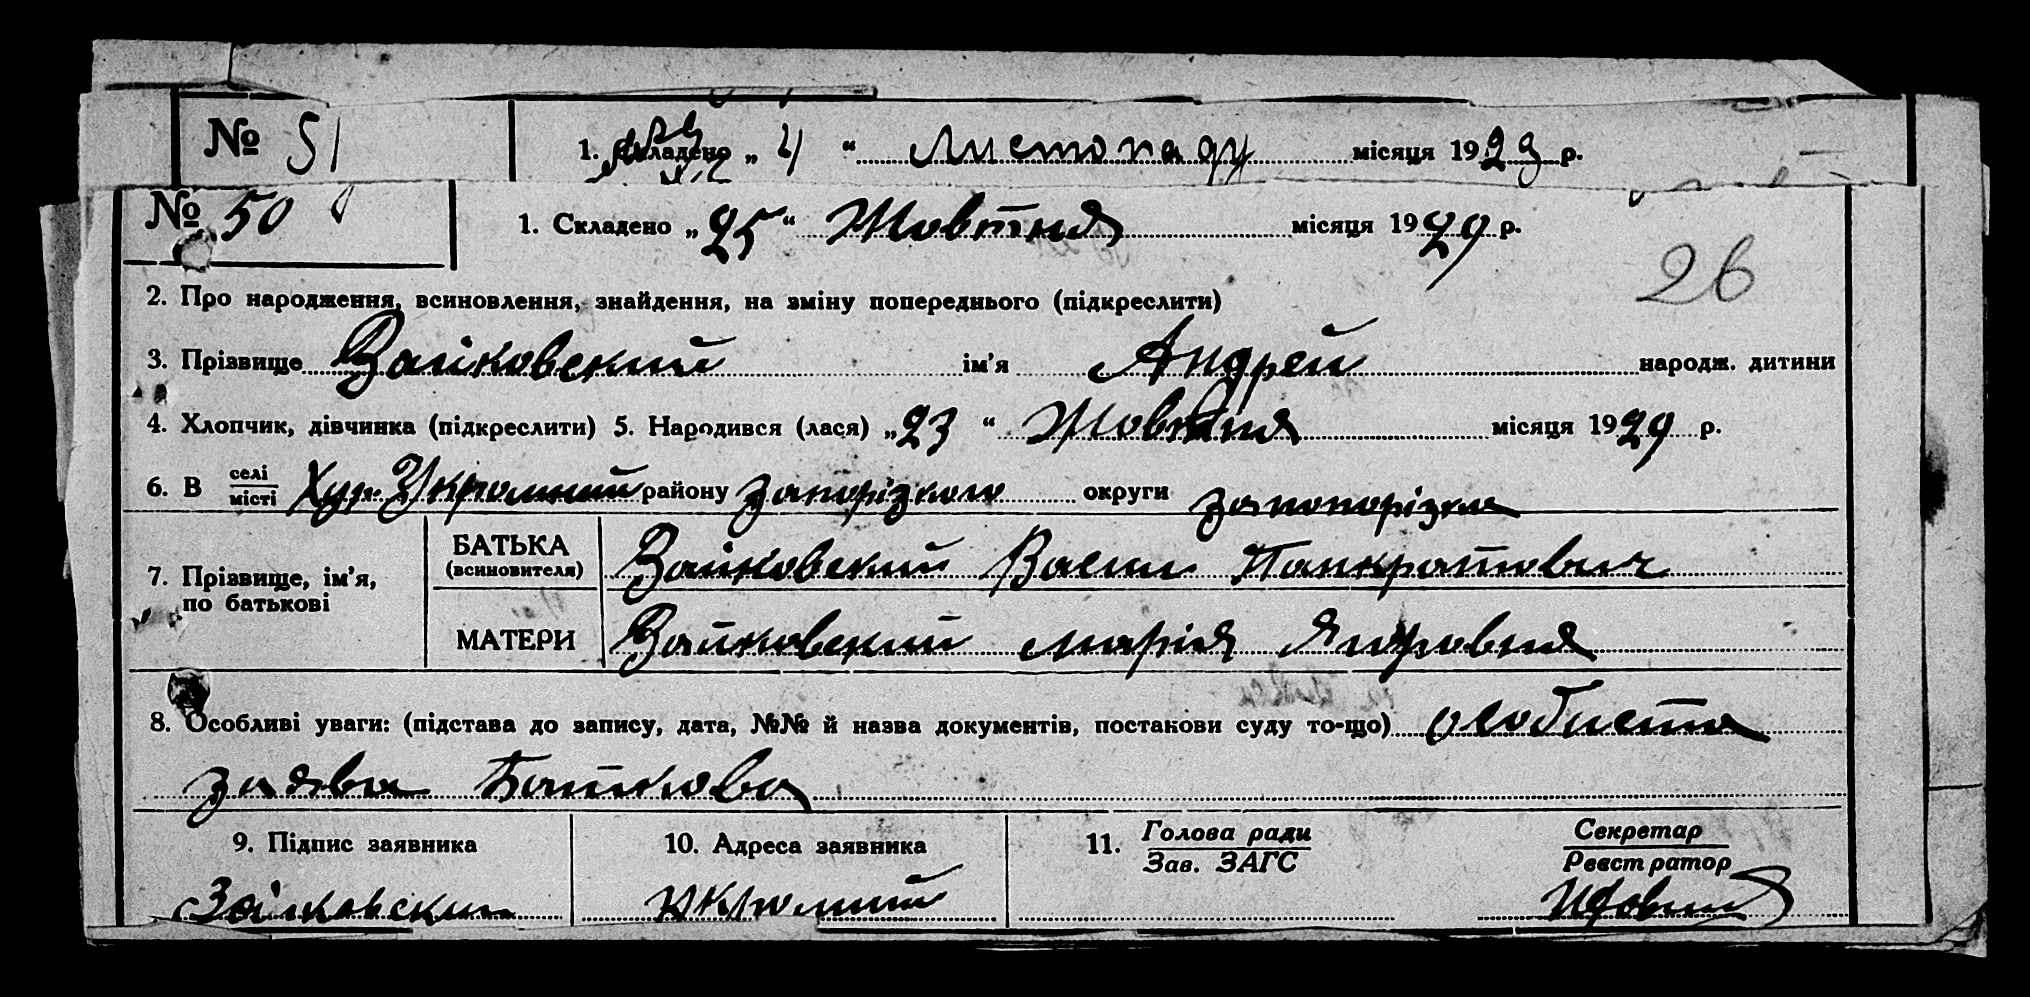 № 51 1. Складено „ 4 “ Листопаду місяця 1929 р.
№ 50 1. Складено „ 25 “ Жовтня місяця 1929 р.
26
2. Про народження, всиновлення, знайдення, на зміну попереднього (підкреслити)
3. Прізвище Зайковский ім'я Андрей народж. дитини
4. Хлопчик, дівчинка (підкреслити) 5. Народився (лася) „ 23 “ Жовтня місяця 1929 р.
6. В селі місті Хут. Укромний району Запорізкого округи
7. Прізвище, ім'я, по батькові
БАТЬКА (всиновителя) Зайковский Васил Панкратович
МАТЕРИ Зайковский Марія
8. Особливі уваги: (підстава до запису, дата, №№ й назва документів, постанови суду то-що) особиста
заява Батькова
9. Підпис заявника 10. Адреса заявника 11. Голова ради Зав. ЗАГС Секретар Реєстратор
Зайковский Укромний